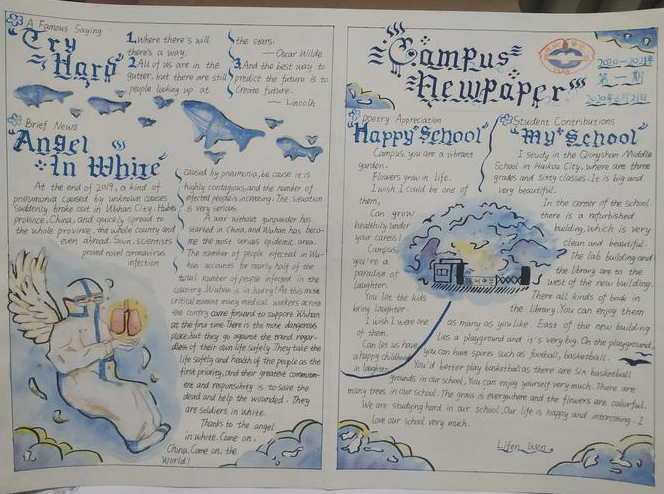 A Famous Saying
Try
Hard
1. Where there's will
there's a way.
2. All of us are in the
gutter, but there are still
people looking up at
the stars.
—Oscar Wilde
3. And the best way to
predict the future is to
create future.
—Lincoln
Brief News
Angel
In White
At the end of 2019, a kind of
pneumonia caused by unknown causes
suddenly broke out in Wuhan City, Hubei
province, China, and quickly spread to
the whole province, the whole country and
even abroad. Soon, scientists
proved novel coronavirus
infection
caused by pneumonia, be cause it is
highly contagious, and the number of
infected people is increasing. The situation
is very serious.
A war without gunpowder has
started in China, and Wuhan has beco-
me the most serious epidemic area.
The number of people infected in Wu-
han accounts for nearly half of the
total number of people infected in the
country. Wuhan is in hurry! At this most
critical moment, many medical workers across
the country came forward to support Wuhan
at the first time. There is the most dangerous
place, but they go against the trend regar-
dless of their own life safety. They take the
life safety and health of the people as the
first priority, and their greatest commitm-
ent and responsibility is to save the
dead and help the wounded. They
are soldiers in white.
Thanks to the angel
in White. Come on,
China. Come on, the
World!
Campus
Newpaper
2020-2021年
第二期
2020年6月21日
Poetry Appreciation
"Happy School"
Campus, you are a vibrant
garden.
Flowers grow in life.
I wish I could be one of
them,
Can grow
healthily under
your cares!
Campus,
you're a
paradise of
laughter.
You let the kids
bring laughter.
I wish I were one
of them.
Can let us have
a happy childhood
in laughter.
Student Contributions
"My School"
I study in the Qiongshan Middle
School in Haikou City, where are three
grades and sixty classes. It is big and
very beautiful.
In the center of the school
there is a refurbished
building, which is very
clean and beautiful.
The lab building and
the library are to the
west of the new building.
There all kinds of book in
the library. You can enjoy them
as many as you like. East of the new building
lies a playground and it's very big. On the playground,
you can have spores such as football, basketball.
You'd better play basketball as there are six basketball
grounds in our school. You can enjoy yourself very much. There are
many trees in our school. The grass is everywhere and the flowers are colorful.
We are studying hard in our school. Our life is happy and interesting. I
love our school very much.
Lifen Wen